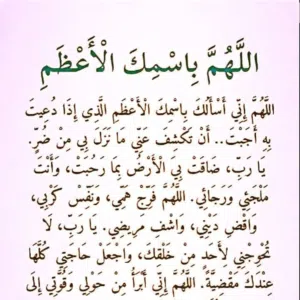 اللَّهُمَّ بِاسْمِكَ الْأَعْظَمِ
اللَّهُمَّ إِنِّي أَسْأَلُكَ بِاسْمِكَ الْأَعْظَمِ الَّذِي إِذَا دُعِيتَ
بِهِ أَجَبْتَ.. أَنْ تَكْشِفَ عَنِّي مَا نَزَلَ بِي مِنْ ضُرٍّ.
يَا رَبِّ، ضَاقَتْ بِي الْأَرْضُ بِمَا رَحُبَتْ، وَأَنْتَ
مَلْجَئِي وَرَجَائِي. اللَّهُمَّ فَرِّجْ هَمِّي، وَنَفِّسْ كَرْبِي،
وَاقْضِ دَيْنِي، وَاشْفِ مَرِيضِي. يَا رَبِّ، لَا
تُحْوِجْنِي لِأَحَدٍ مِنْ خَلْقِكَ، وَاجْعَلْ حَاجَتِي كُلَّهَا
عِنْدَكَ مَقْضِيَّةً. اللَّهُمَّ إِنِّي أَبْرَأُ مِنْ حَوْلِي وَقُوَّتِي إِلَى